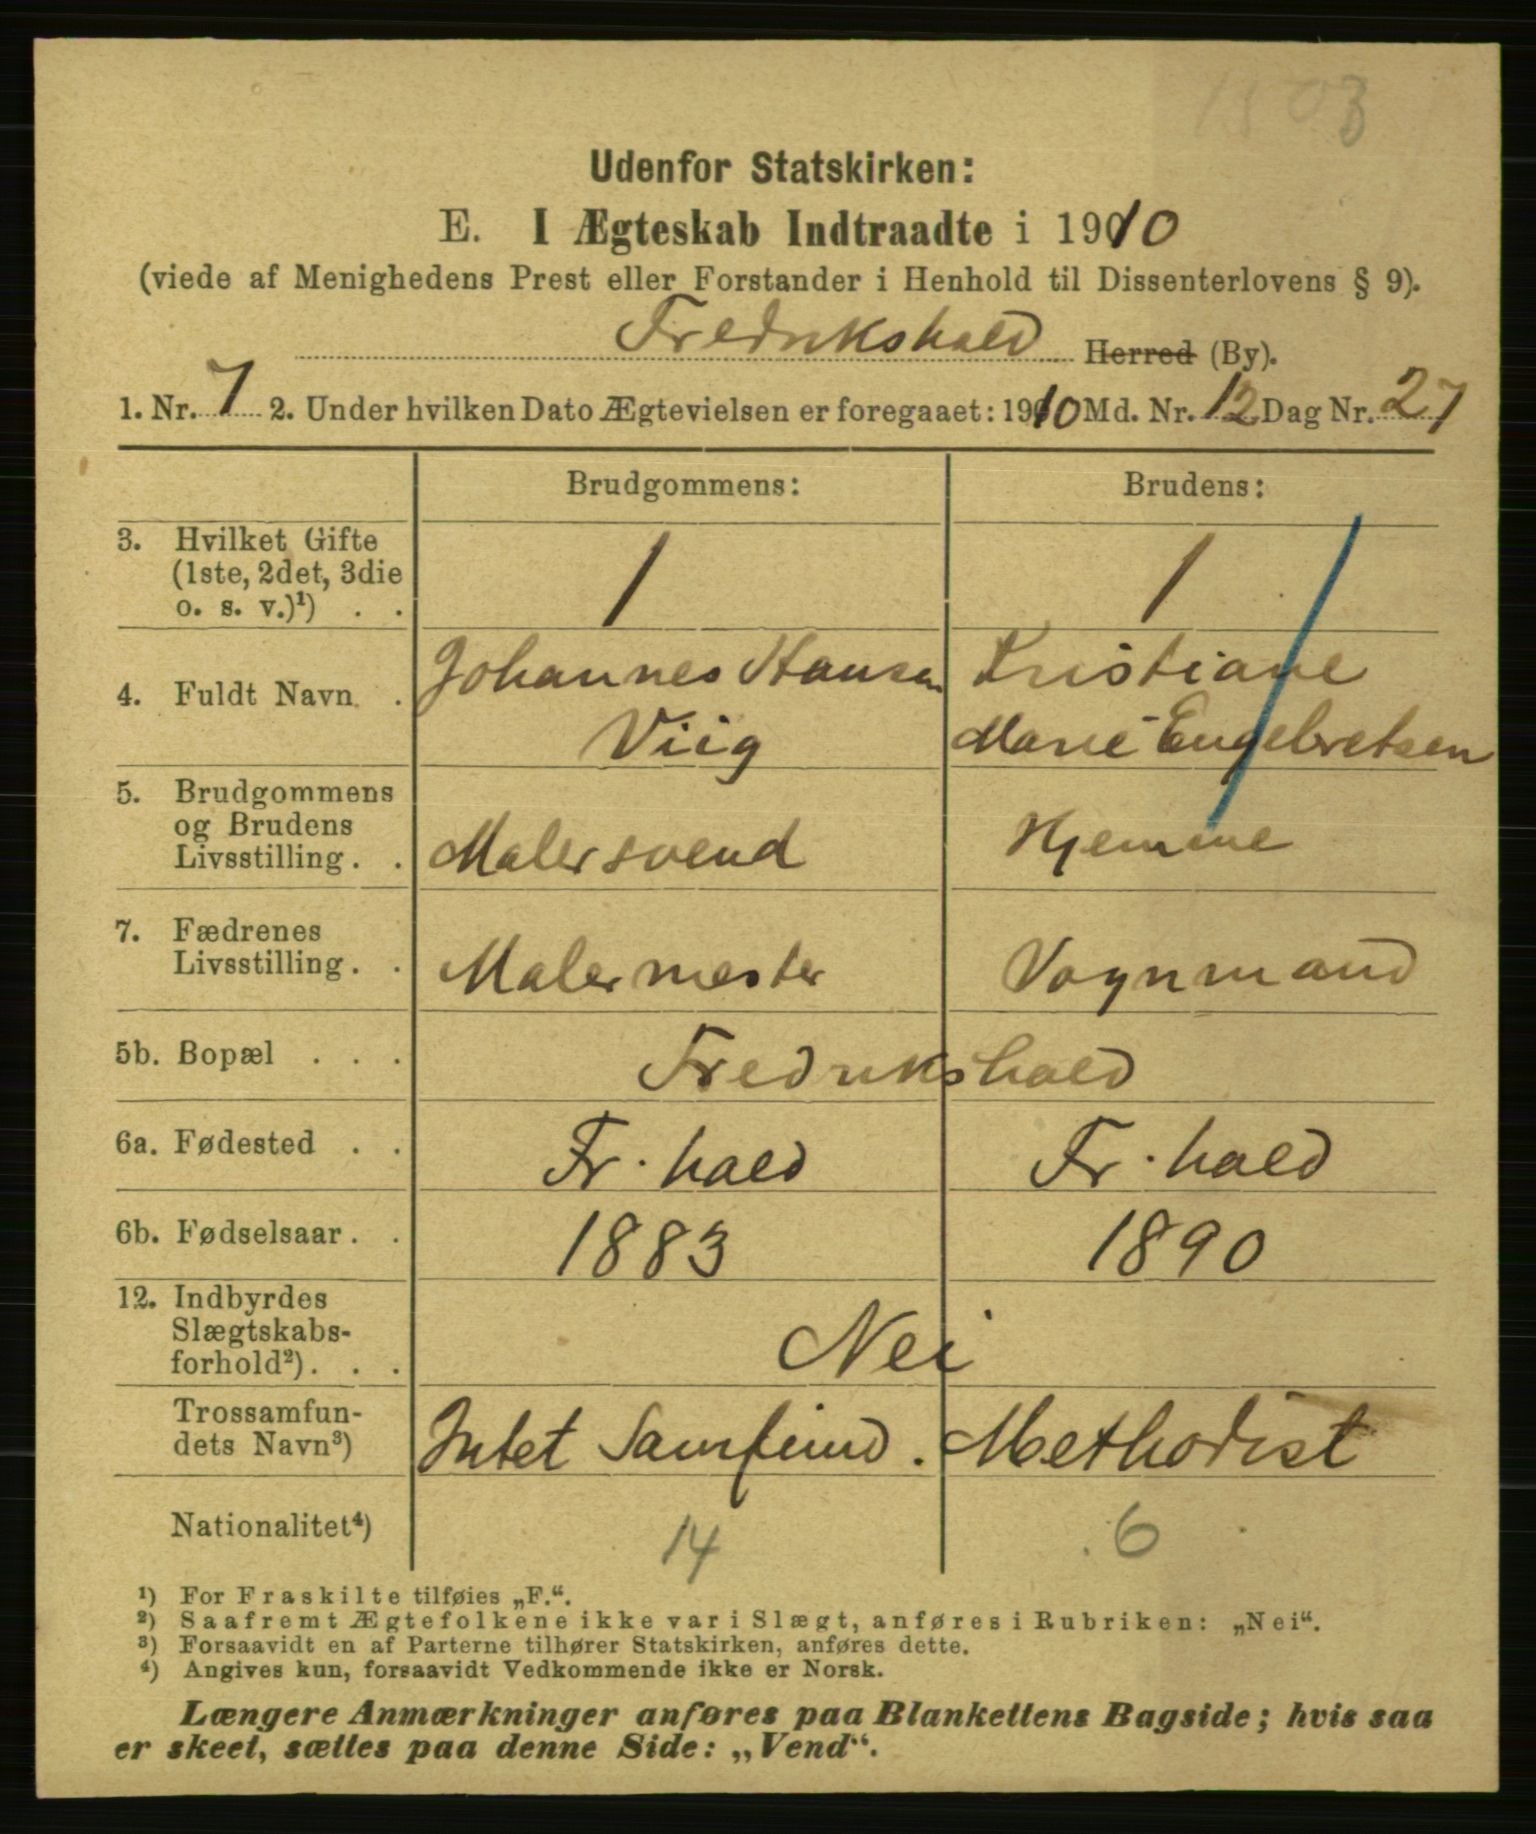 1503
Udenfor Statskirken:
E. I Ægteskab Indtraadte i 1910
(viede af Menighedens Prest eller Forstander i Henhold til Dissenterlovens § 9).
Fredrikshald Herred (By).
1. Nr. 7 2. Under hvilken Dato Ægtevielsen er foregaaet: 1910 Md. Nr. 12 Dag Nr. 27
Brudgommens: Brudens:
3. Hvilket Gifte
(1ste, 2det, 3die
o. s. v.)¹) . . 1 1
Johannes Hansen Kristiane
4. Fuldt Navn .
Viig Marie Engebretsen
5. Brudgommens
og Brudens
Livsstilling . . Malersvend Hjemme
7. Fædrenes
Livsstilling . . Malermester Vognmand
5b. Bopæl . . . Fredrikshald
6a. Fødested . . Fr. hald Fr. hald
6b. Fødselsaar . . 1883 1890
12. Indbyrdes
Slægtskabs-
forhold²) . . . Nei
Trossamfun-
dets Navn³) Intet Samfund. Methodist
Nationalitet⁴) 14 6
¹) For Fraskilte tilføies „F.“.
²) Saafremt Ægtefolkene ikke var i Slægt, anføres i Rubriken: „Nei“.
³) Forsaavidt en af Parterne tilhører Statskirken, anføres dette.
⁴) Angives kun, forsaavidt Vedkommende ikke er Norsk.
Længere Anmærkninger anføres paa Blankettens Bagside; hvis saa
er skeet, sættes paa denne Side: „Vend“.